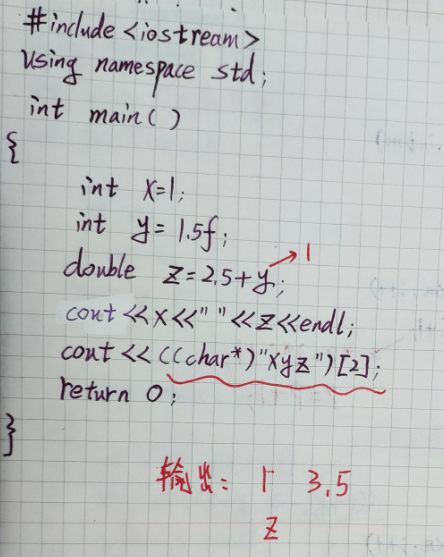 #include <iostream>
using namespace std;
int main()
{
int x=1;
int y=1.5f;
1
double z=2.5+y;
cout<<x<<" "<<z<<endl;
cout<<((char*)"xyz")[2];
return 0;
}
输出: 1 3.5
z